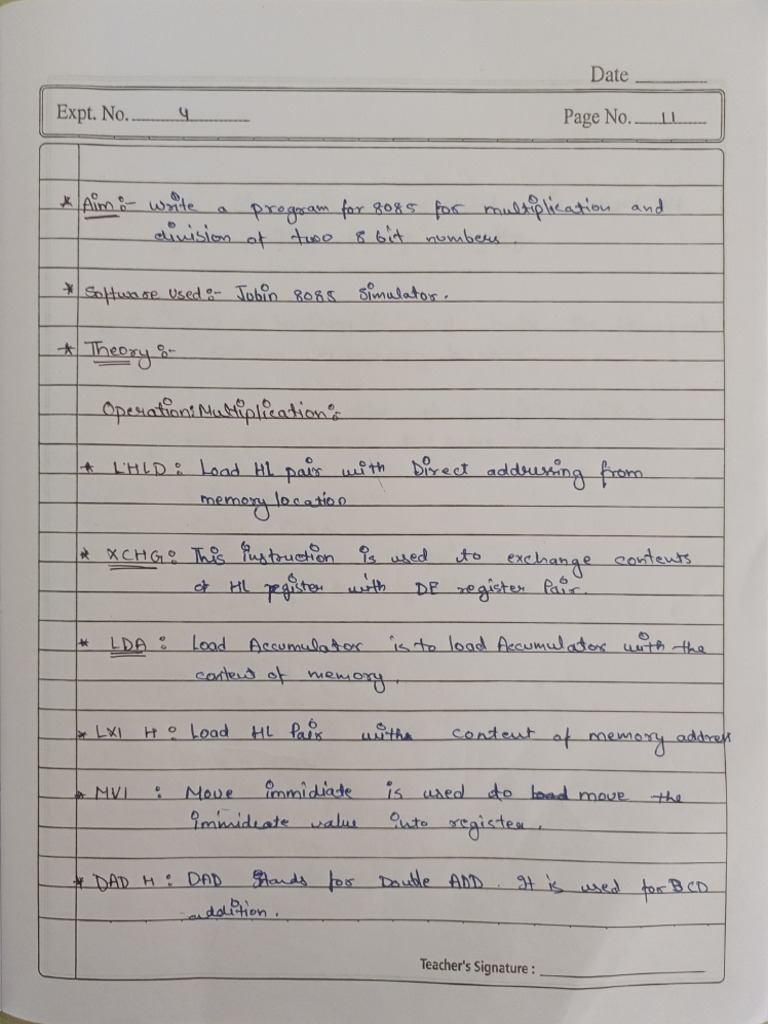 Date
Expt. No. 4
Page No. 11
* Aim :- Write a program for 8085 for multiplication and
division of two 8 bit numbers.
* Software Used :- Jubin 8085 Simulator.
* Theory :-
Operation: Multiplication :
* LHLD : Load HL pair with Direct addressing from
memory location
* XCHG : This instruction is used to exchange contents
of HL register with DE register Pair.
* LDA : Load Accumulator is to load Accumulator with the
content of memory.
* LXI H : Load HL Pair with content of memory address
* MVI : Move immidiate is used to load move the
immideate value into register.
* DAD H : DAD Stands for Double ADD. It is used for BCD
addition.
Teacher's Signature :